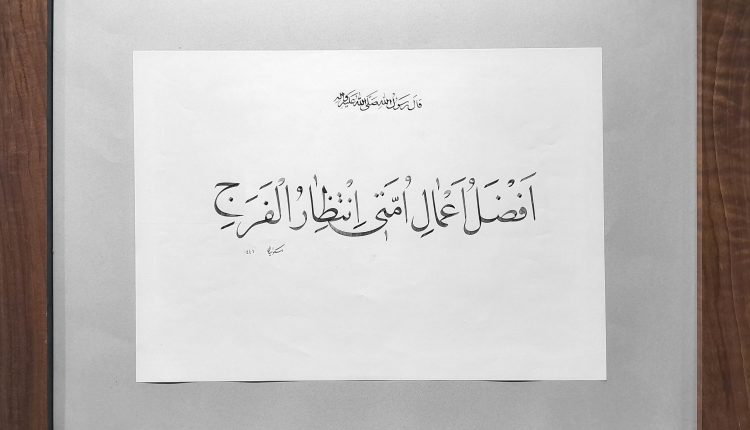 قَالَ رَسُولُ اللهِ صَلَّی اللهُ عَلَیْهِ وَآلِهِ
اَفْضَلُ اَعْمٰالِ اُمَّتی اِنْتِظٰارُ الْفَرَجِ